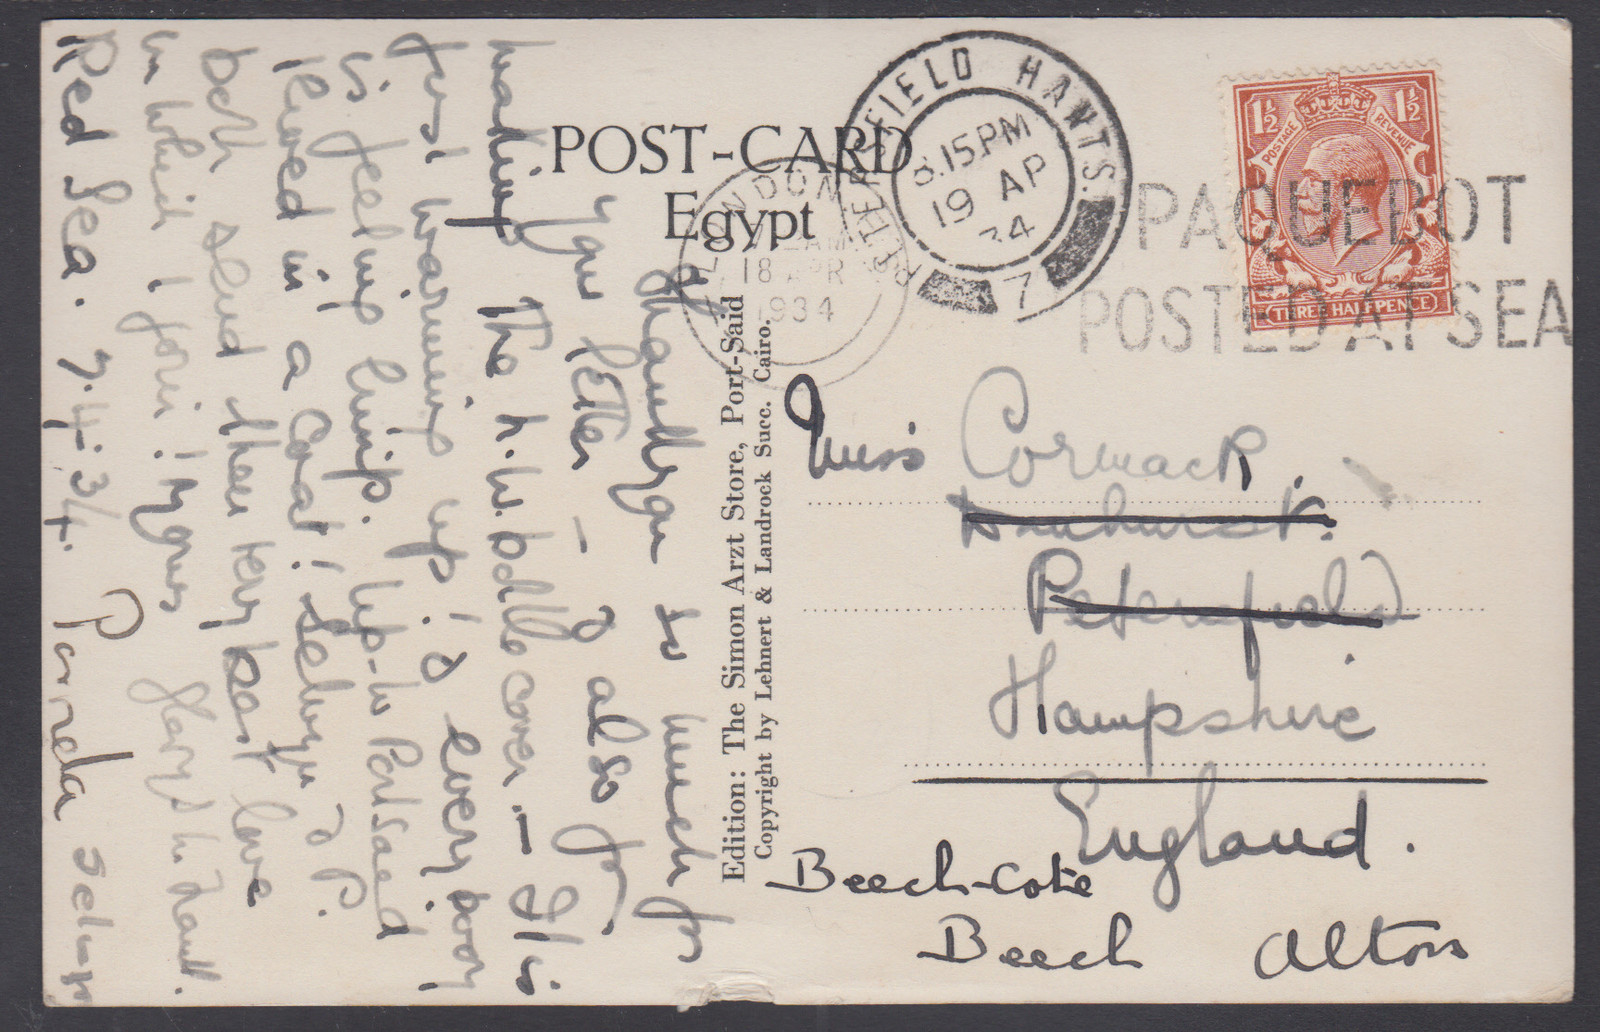 POST-CARD
Egypt
PETERSFIELD HANTS.
8.15PM
19 AP
34
7
LONDON
AM
18 APR
1934
PAQUEBOT
POSTED AT SEA
1½ 1½
POSTAGE REVENUE
THREE HALFPENCE
Edition: The Simon Arzt Store, Port-Said
Copyright by Lehnert & Landrock Succ. Cairo.
Miss Cormack.
Petersfield
Hampshire
England.
Beech-Cote
Beech Alton
Red Sea. 7.4.34.
Thank you so much for
your letter – & also for
making the h.w. bottle cover. – It is
just warming up! & everybody
is feeling limp. Up-to Portsaid
lived in a coat!
both send their very best love
in which I join! Yours